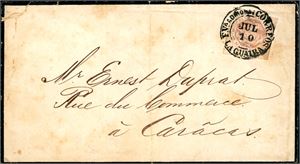 CORREOS
JUL
10
LA GUAIRA
Mr Ernest Duprat
Rue du Commerce
à Carácas